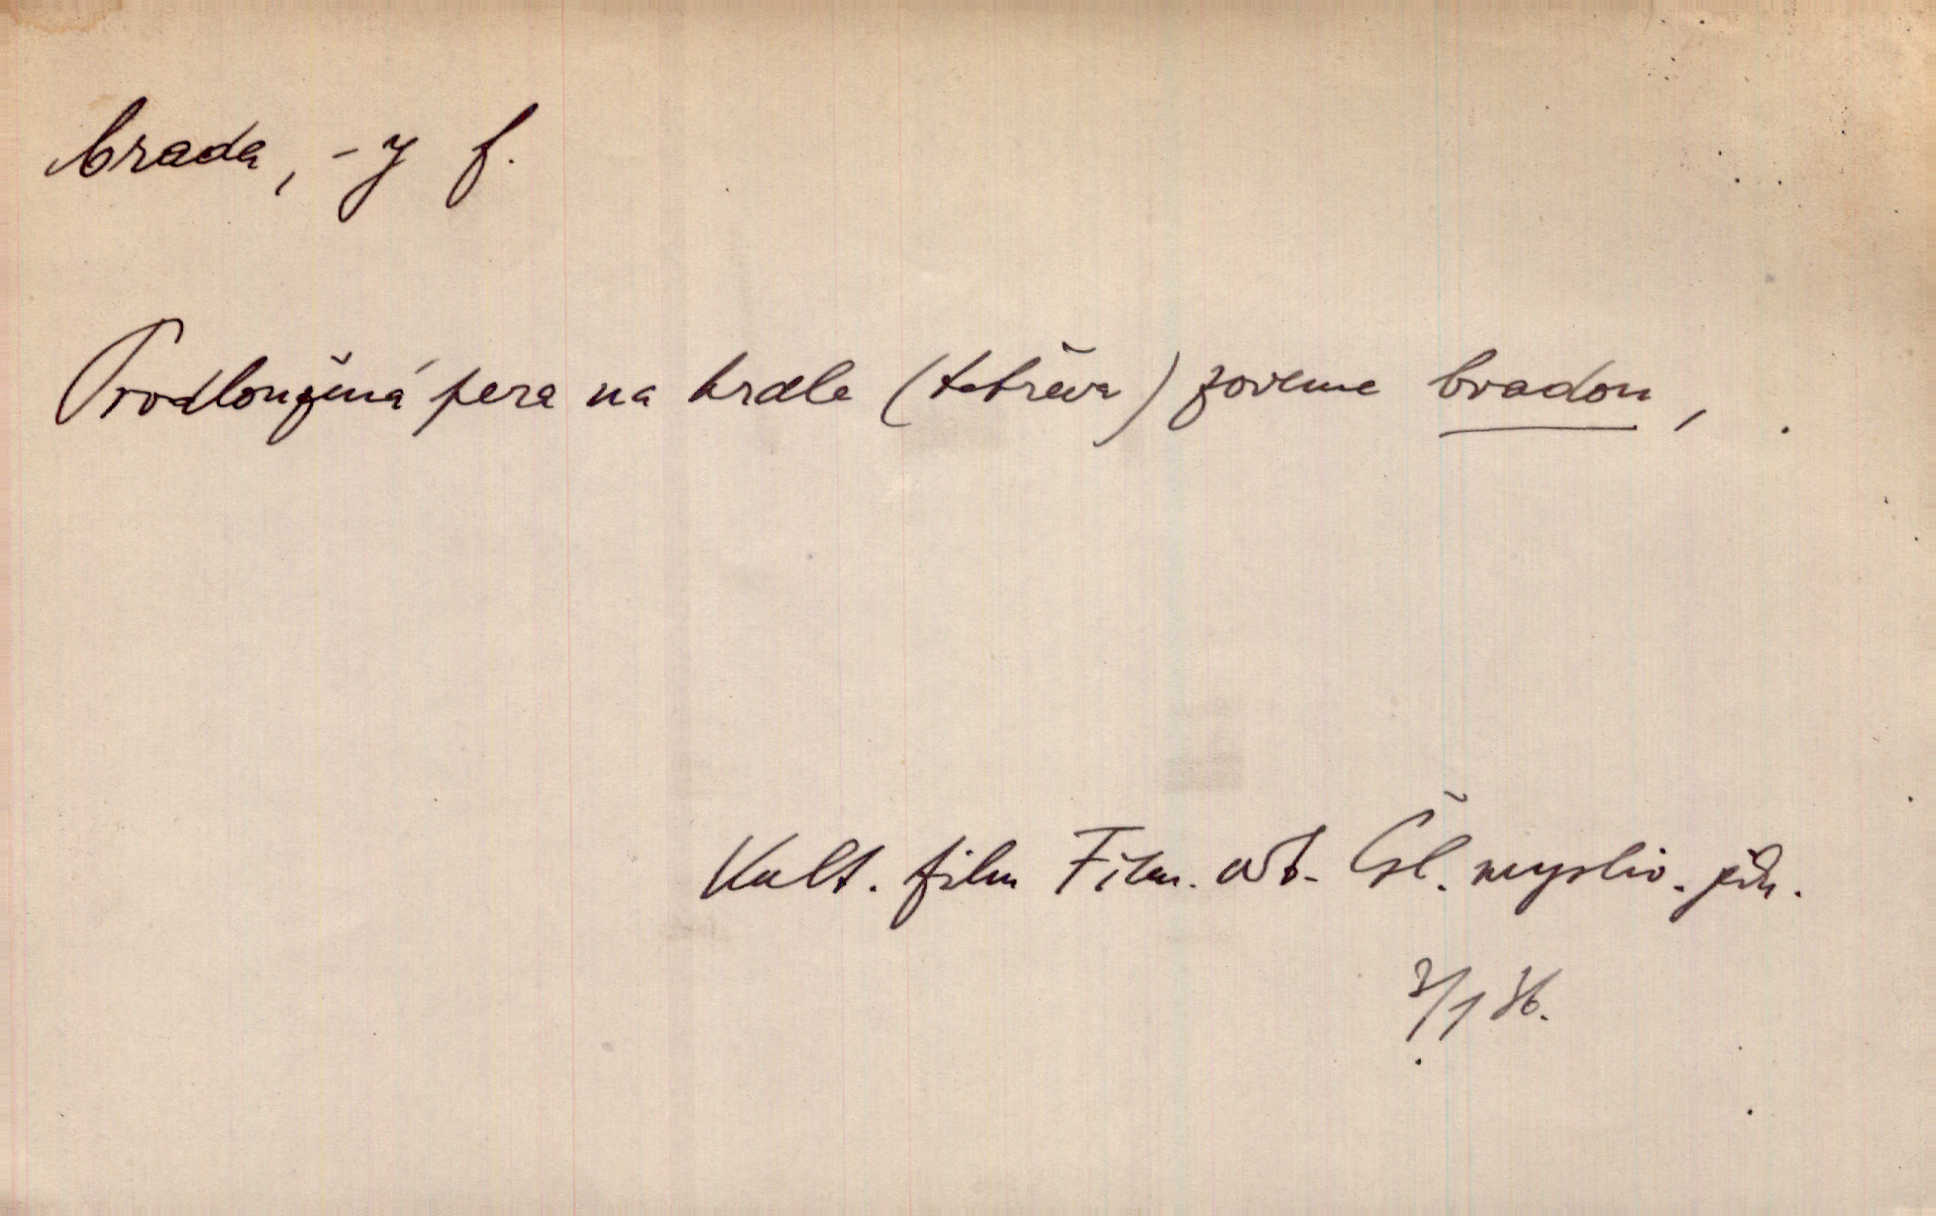 brada, -y f.
Prodloužená pera na hrdle (tetřeva) zoveme bradou,
Kult. film Film. odb. Čsl. mysliv. jedn.
3/1 36.